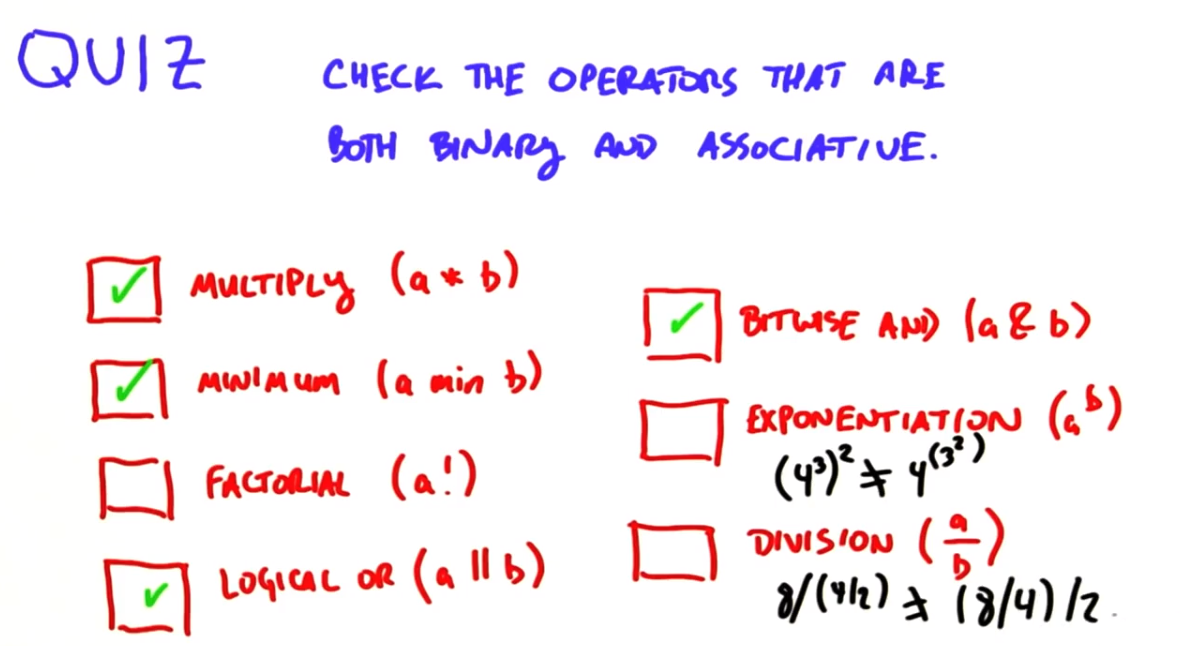 QUIZ
CHECK THE OPERATORS THAT ARE
BOTH BINARY AND ASSOCIATIVE.
MULTIPLY (a * b)
MINIMUM (a min b)
FACTORIAL (a!)
LOGICAL OR (a || b)
BITWISE AND (a & b)
EXPONENTIATION (a^b)
(4³)² ≠ 4^(3²)
DIVISION (a/b)
8/(4/2) ≠ (8/4)/2